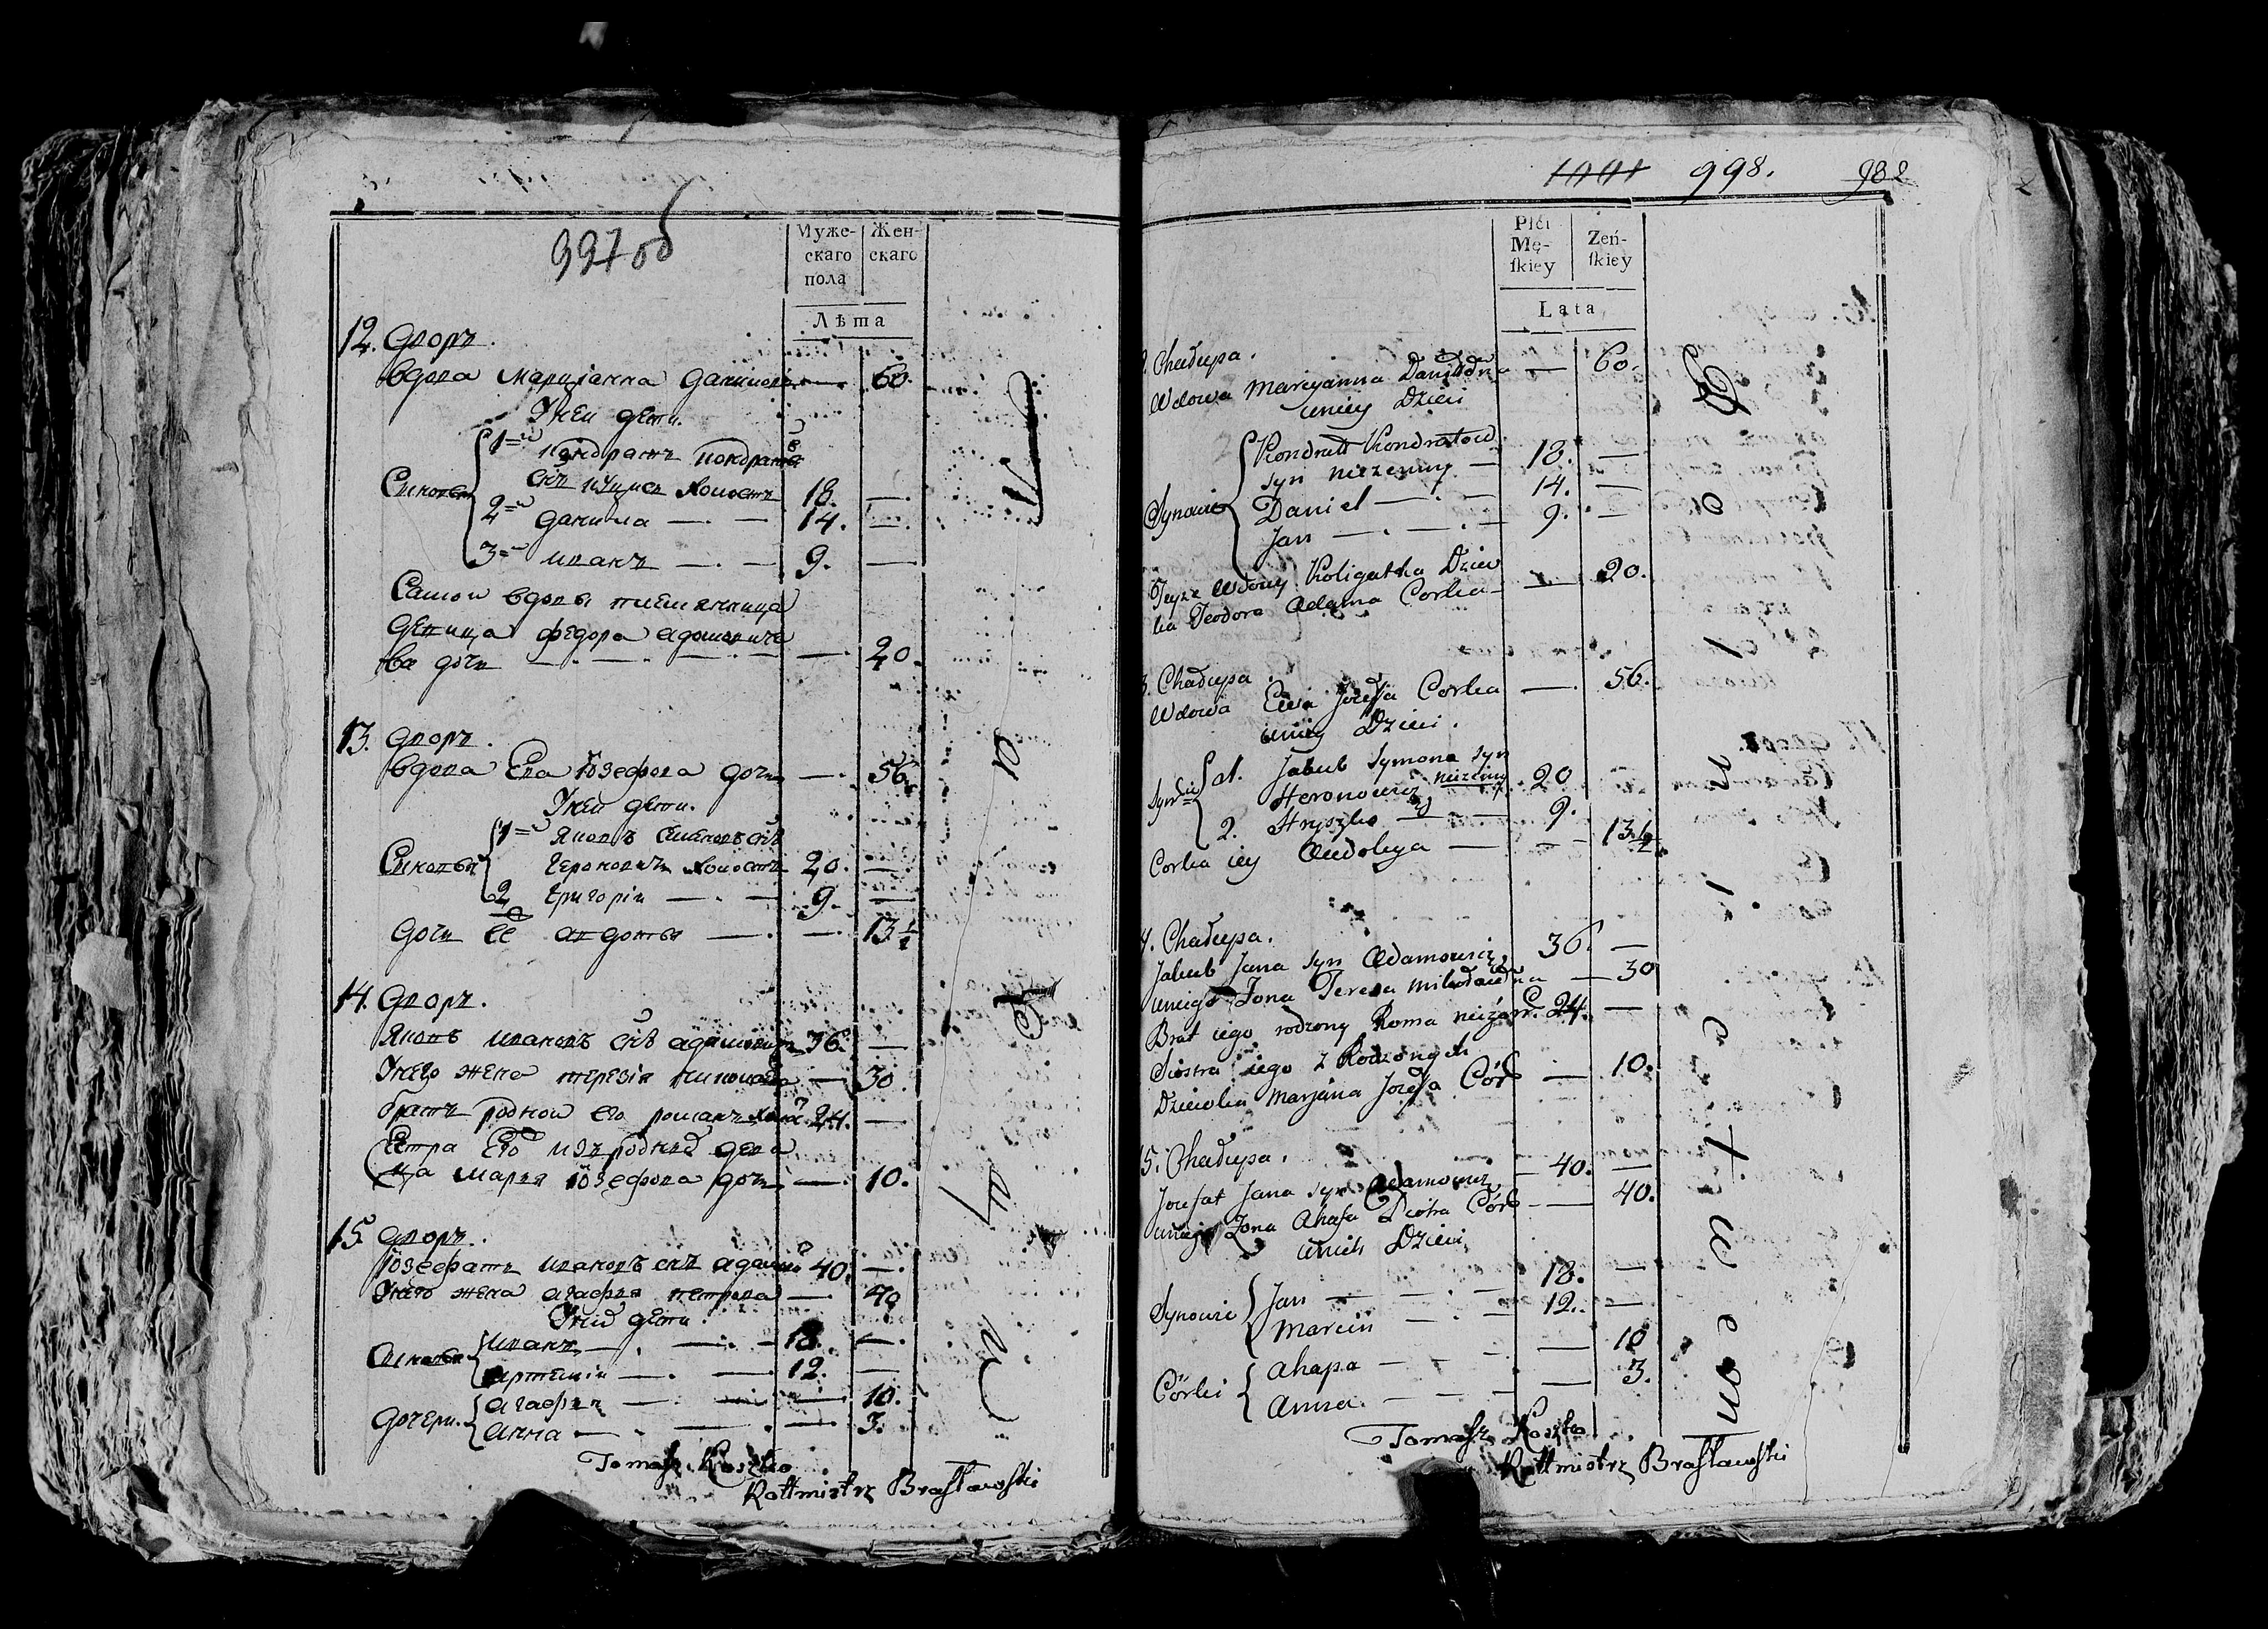 997 об
Муже-
скаго
пола
Жен-
скаго
Лѣта
12. дворъ.
вдова Марціанна данилова — 60.
У неи дети.
1=й кондратъ кондратов
Сыновья
снъ холостъ 18. —
2=й данила — 14. —
3=й иванъ — 9. —
Самои вдовы племянница
девица федора адамовиче
ва дочь — — 20.
13. дворъ.
вдова Ева Юзефова дочь — 56.
У неи дети.
1=й Яковъ Симоновъ снъ
Сыновья
Героновичъ холостъ 20. —
2 Григоріи — 9. —
дочь ее авдотья — — 13 1/2
14. дворъ.
Яковъ ивановъ снъ адамовичъ 36. —
У него жена терезія — 30
братъ роднои его романъ холос 24. —
Сестра Его изъ родныхъ деви
ца марья Юзефова дочь — 10.
15. дворъ.
Юзефатъ ивановъ снъ адамов 40. —
У него жена агафья петрова — 40
У них дети.
Сыновья
иванъ — 18. —
артеміи — 12. —
дочери.
агафья — — 10.
анна — — 3.
Tomasz Koszko
Rottmistrz Brasławski
1001 998. 982
Płci
Mę-
ſkiey
Zeń-
ſkiey
Lata
2. Chałupa.
Wdowa Maryanna Daniłowna — 60.
u niey Dzieci
Kondratt Kondratow
syn niezenny — 18. —
Synowie
Daniel — 14. —
Jan — 9. —
Teyże Wdowy Koligatka Dziew
ka Teodora Adama Corka — 20.
3. Chałupa
Wdowa Ewa Jozefa Corka — 56.
u niey Dzieci.
Synowie
1. Jakub Symona syn
Heronowicz niezenny 20
2. Hryszko — 9.
Corka iey Audotya — — 13 1/2
4. Chałupa.
Jakub Jana syn Adamowicz 36. —
u niego Żona Teresa — 30
Brat iego rodzony Roma nieżon. 24. —
Siostra iego z Rodzonych
Dziewka Maryana Jozefa Córk — 10.
5. Chałupa.
Jozefat Jana syn Adamowicz — 40. —
u niego Żona Ahafa Piotra Córk — 40.
u nich Dzieci
Synowie
Jan — 18. —
Marcin — 12. —
Córki
Ahapa — — 10
Anna — — 3.
Tomasz Koszko
Rottmistrz Brasławski